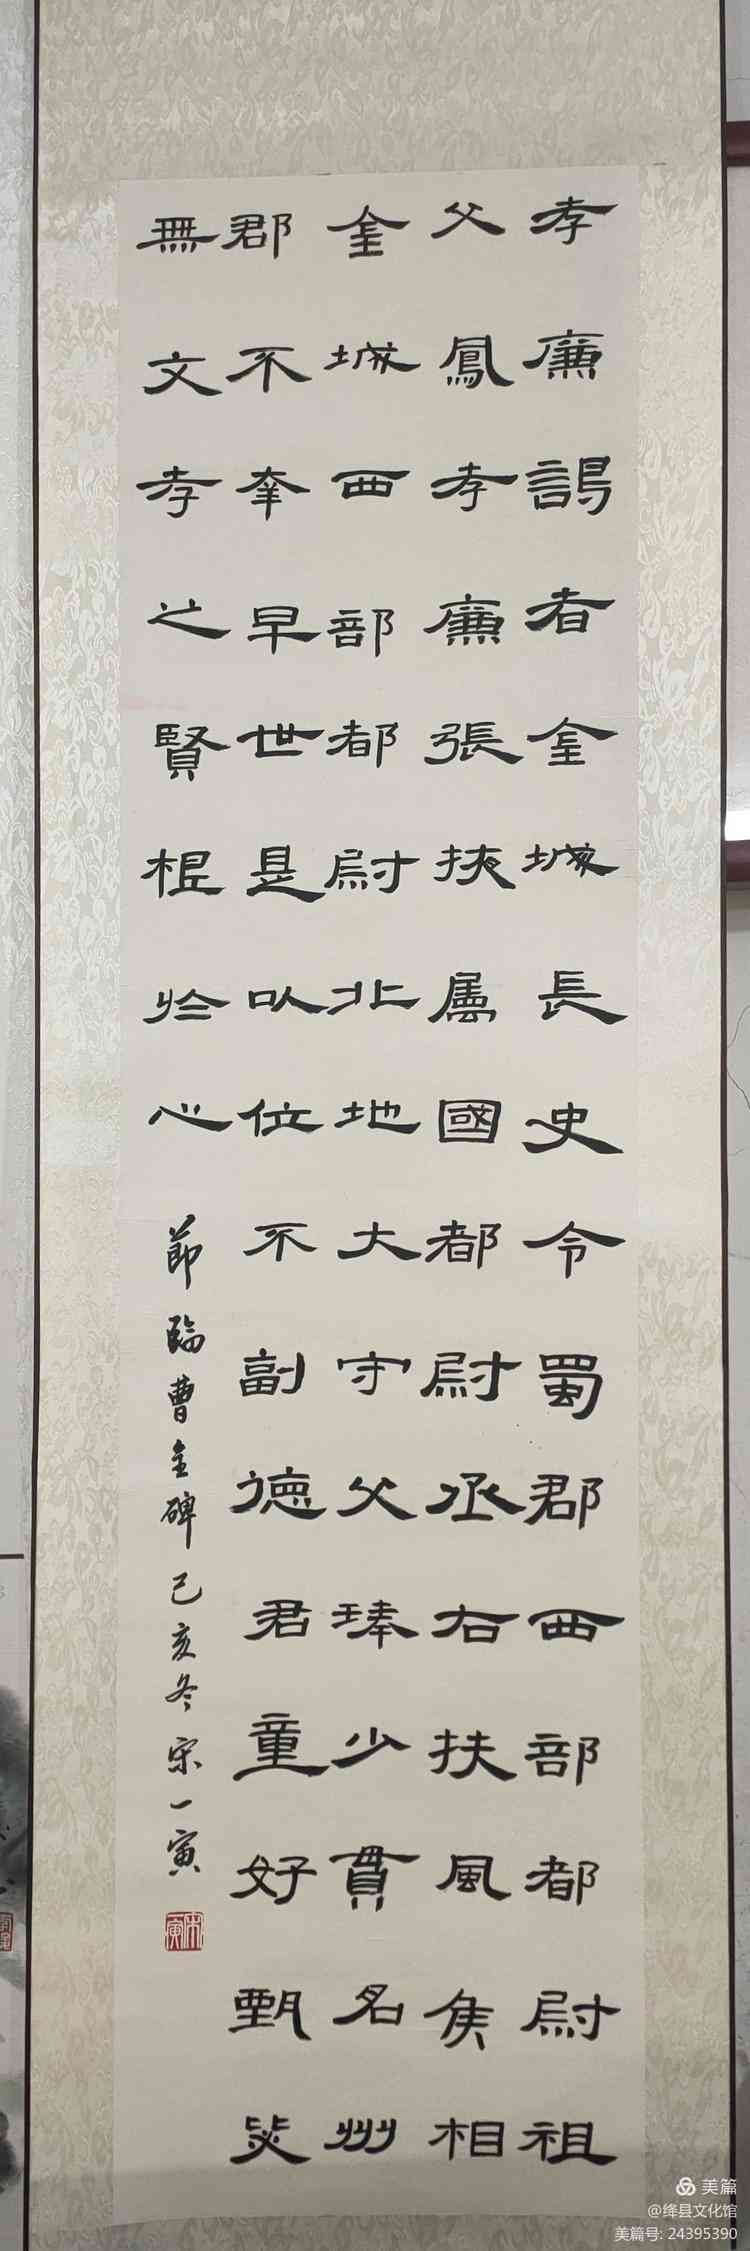 孝廉謁者金城長史令蜀郡西部都尉祖
父鳳孝廉張掖屬國都尉丞右扶風侯相
金城西部都尉北地大守父琫少貫名州
郡不幸早世是以位不副德君童好甄毖
無文孝之賢根於心
節臨曹全碑己亥冬宋一寅
美篇
@绛县文化馆
美篇号: 24395390